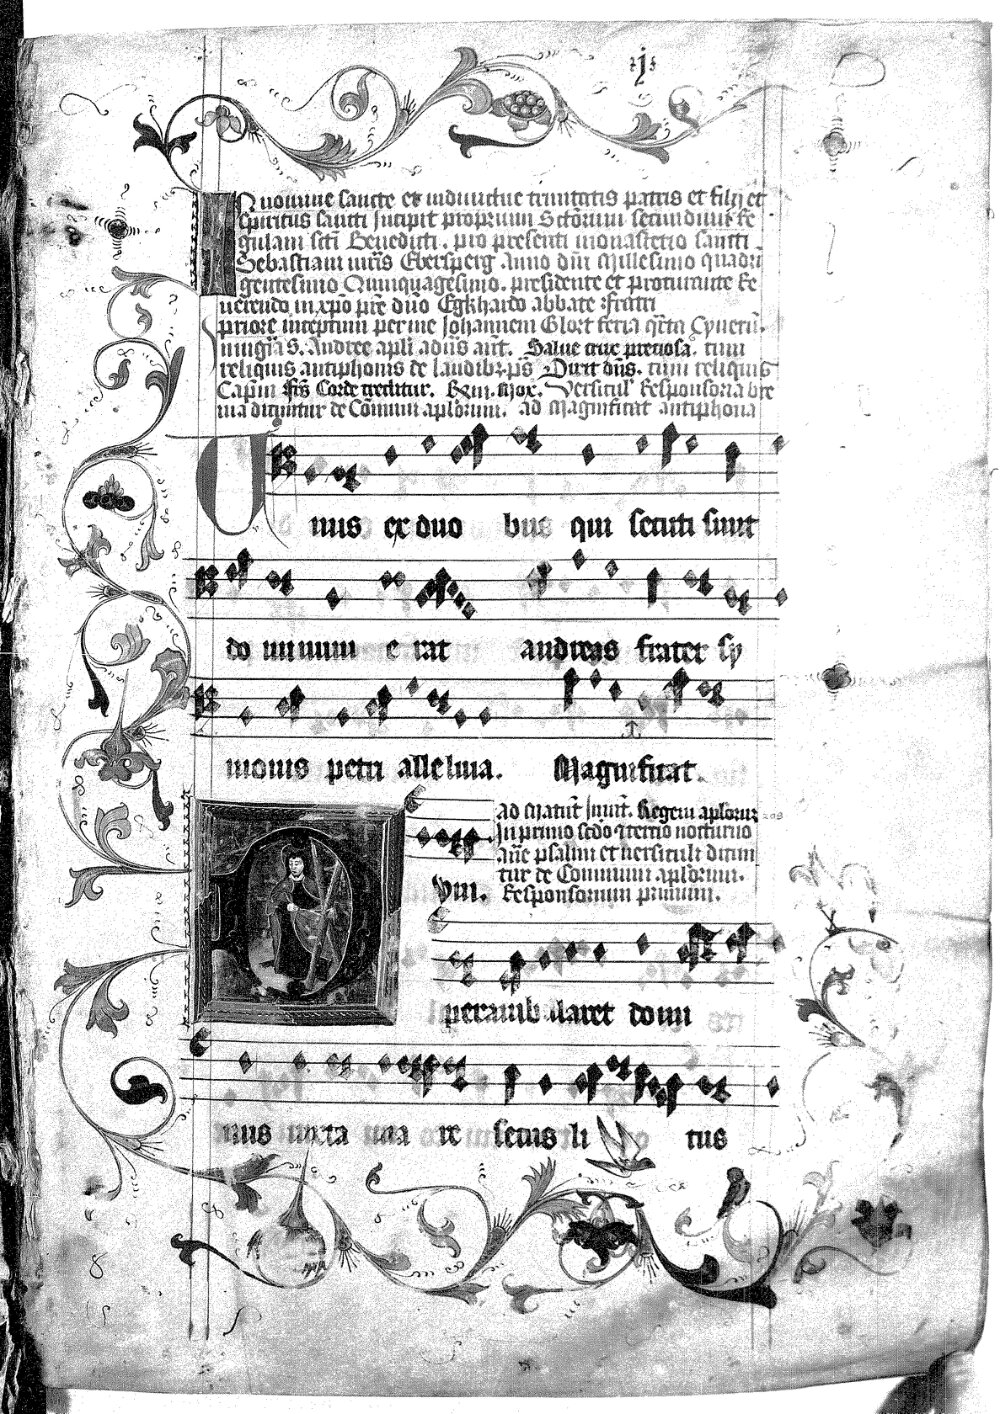 j
In nomine sancte et indiuidue trinitatis patris et filij et
spiritus sancti Incipit proprium Sctōrum secundum Re
gulam scti Benedicti. pro presenti monasterio sancti
Sebastiani mrīs Ebersperg Anno dnī Millesimo quadri
gentesimo Quinquagesimo. presidente et procurante Re
uerendo in xpō prē dnō Egkhardo abbate fratri
priore inceptum per me Johannem Glort feria qrta Cynerū.
In uigīa S. Andree apli ad uās ant. Salue crux preciosa. cum
reliquis antiphonis de laudibꝫ. ps Dixit dns. cum reliquis
Capm̄ Corde creditur. Versicul' Responsoria bre
uia dicuntur de Cōmuni aplorum. ad Magnificat antiphona
Unus ex duo bus qui secuti sunt
do minum e rat andreas frater sy
monis petri alleluia. Magnificat.
ad Matut̄ Inuit̄. Regem aplorum
In primo scdo et tercio nocturno
ane psalmi et uersiculi dicun
tur de Communi aplorum.
VIII. Responsorium primum.
Dum perambularet domi
nus iuxta ma re secus li tus